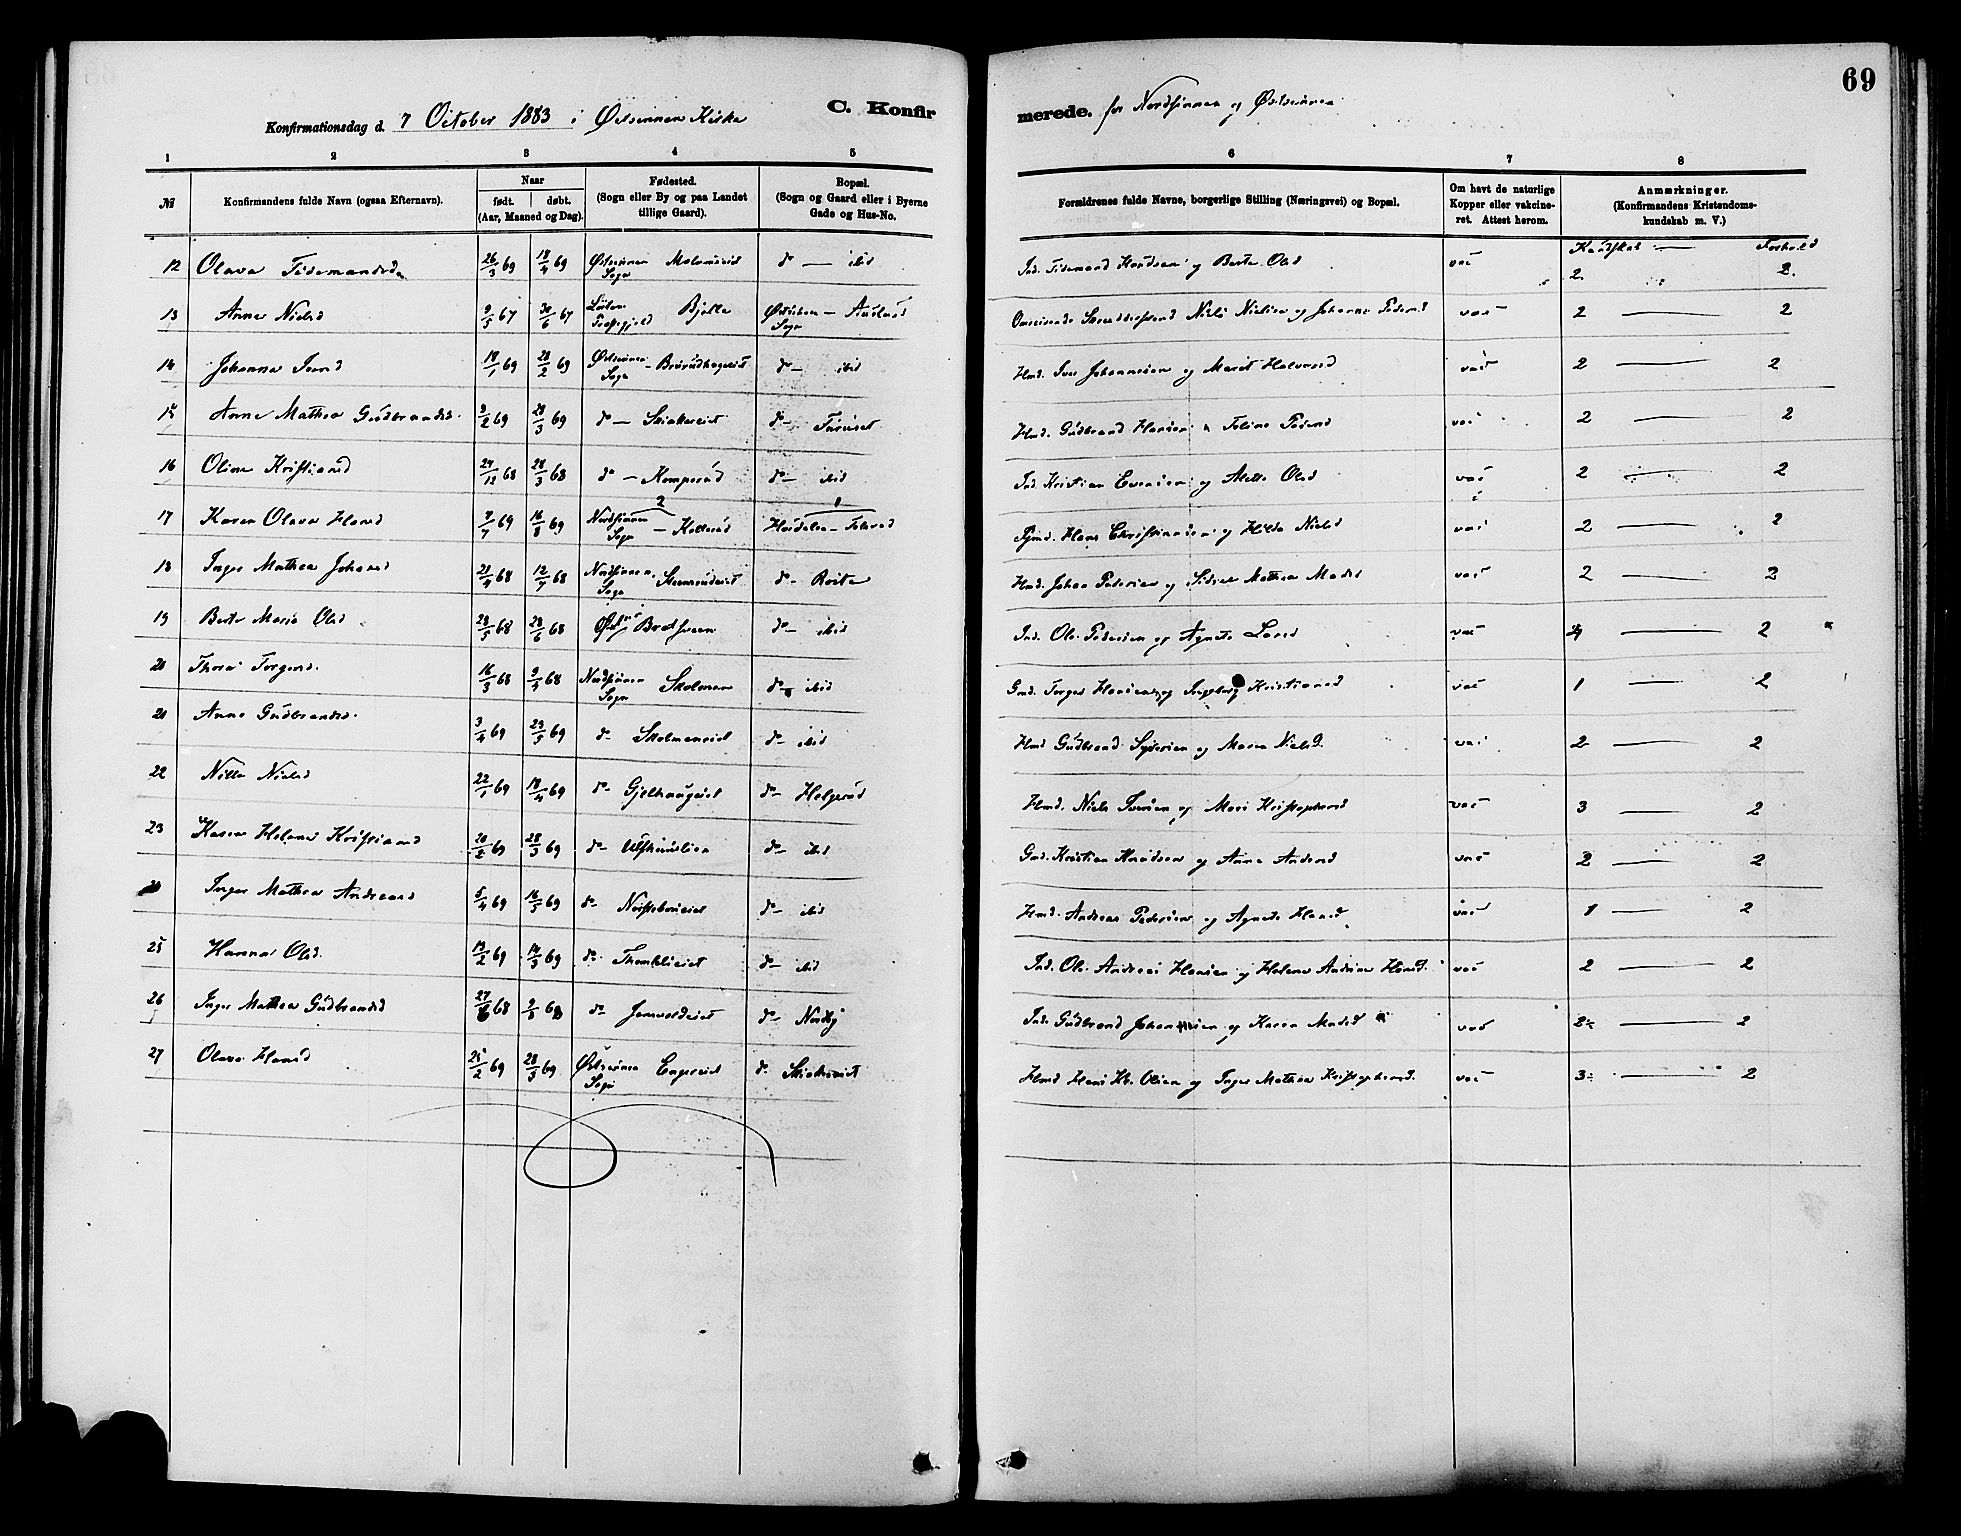 69
Konfirmationsdag d. 7 October 1883 i Østsinnen Kirke C. Konfir merede. for Nordsinnen og Østsinnen
1 2 3 4 5 6 7 8
№ Konfirmandens fulde Navn (ogsaa Efternavn). Naar født. døbt. (Aar, Maaned og Dag). Fødested. (Sogn eller By og paa Landet tillige Gaard). Bopæl. (Sogn og Gaard eller i Byerne Gade og Hus-No. Forældrenes fulde Navne, borgerlige Stilling (Næringsvei) og Bopæl. Om havt de naturlige Kopper eller vakcineret. Attest herom. Anmærkninger. (Konfirmandens Kristendomskundskab m. V.)
Kundskab — Forhold
12 Olava Tidemandsd 26/3 69 18/4 69 Østsinnen Sogn do — ibid Ind. Tidemand Knudsen og Berte Olsd vac 2 2.
13 Anne Nielsd 9/5 67 30/6 67 Bjelle Østsinnen Sogn — Niels Nielsen og Johanne Pedersd vac 2 — 2
14 Johanne Iversd 18/1 69 28/2 69 Østsinnen Sogn — do — ibid Hmd. Iver Johannesen og Marit Halvorsd vac 2 — 2
15 Anne Mathea Gudbrandsd. 9/2 69 28/3 69 do — Skiakereiet do — Hmd. Gudbrand Hansen Pedersd vac 2 — 2
16 Oline Kristiansd 68 28/3 68 do — Komperud do — ibid Ind. Kristian Evensen og Olsd vac 2 — 2
17 Karen Olava Hansd 7/7 69 16/8 69 2 Nordsinnen Sogn — 1 Hans og Hilda Nielsd vac 2 — 2
18 Inger Mathea Johansd 21/4 68 12/7 68 Nordsinnen Sogn do — Hmd. Johan Pedersen og Mathea Madsd vac 2 — 2
19 Berte Marie Olsd 28/5 68 28/6 68 do — ibid Ind. Ole Pedersen og Agnete Larsd vac 4 — 2
20 Thora Torgersd. 16/3 68 9/4 68 Nordsinnen Sogn Skolmen do — ibid Gmd. Torger Hansen og Ingeborg Kristiansd vac 1 — 2
21 Anne Gudbrandsd. 3/4 69 23/5 69 do Skolmeneiet do — ibid Hmd Gudbrand Syversen og Maren Nielsd. vac 2 — 2
22 Nille Nielsd 22/1 69 18/4 69 do — Gjelhaugeiet do — Helgerud Hmd. Niels Iversen og Mari Kristophersd vac 3 — 2
23 Karen Helene Kristiansd 20/2 69 28/3 69 do — do — ibid Gmd. Kristian Knudsen og Anne Andersd vac 2 — 2
Inger Mathea Andreasd 5/4 69 16/5 69 do do — ibid Hmd. Andreas Pedersen og Agnete Hansd vac 1 — 2
25 Hanna Olsd. 12/2 69 14/3 69 do — Thomleiet do — ibid Ind. Ole Andreas Hansen og Helene Andrine Hansd. vac 2 — 2
26 Inger Mathea Gudbrandsd 27/6 68 9/8 68 do — Jomvoldeiet do — Nordby Ind. Gudbrand Johannesen og Karen Madsd vac 2 — 2
27 Olava Hansd 25/2 69 28/3 69 Østsinnen Sogn Engereiet do Skiakereiet Hmd Hans Kr. Olsen og Inger Mathea Kristophersd. vac 3 — 2